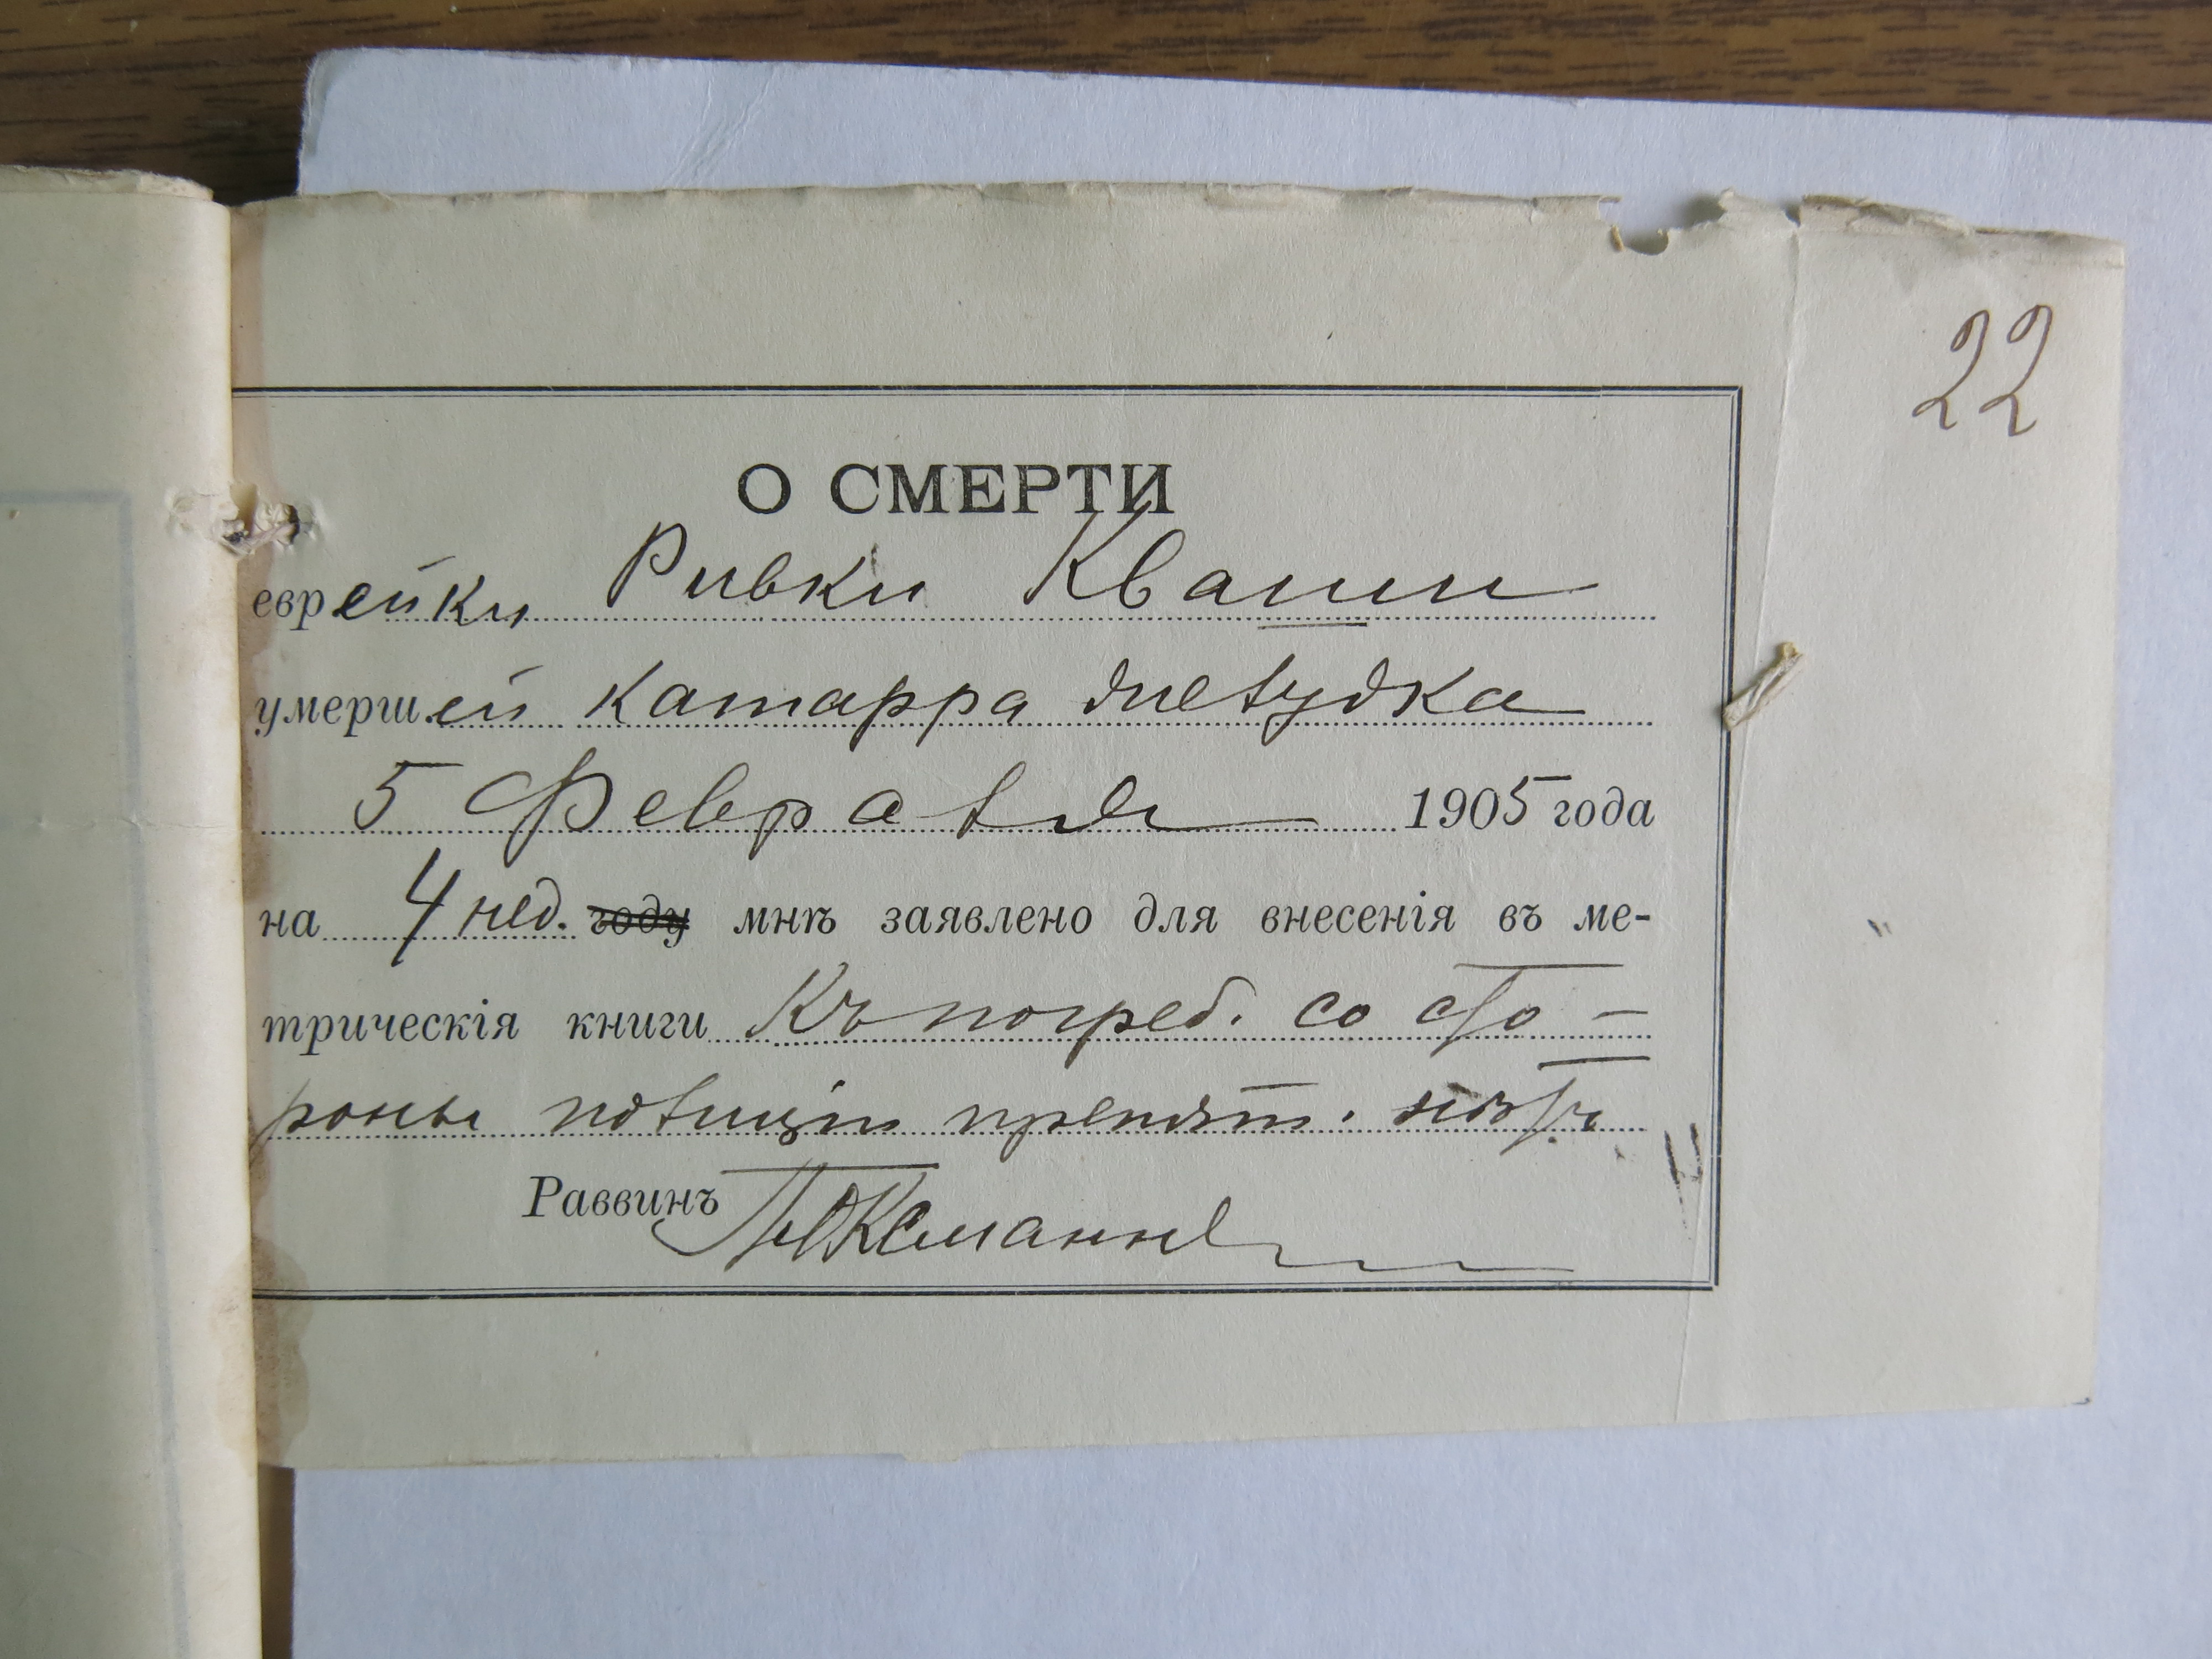 22
О СМЕРТИ
еврейки Ривки Кваши
умершей катарра желудка
5 Февраля 1905 года
на 4 нед. году мнѣ заявлено для внесенія въ ме-
трическія книги Къ погреб. со сто-
роны полиціи препят. нѣтъ
Раввинъ